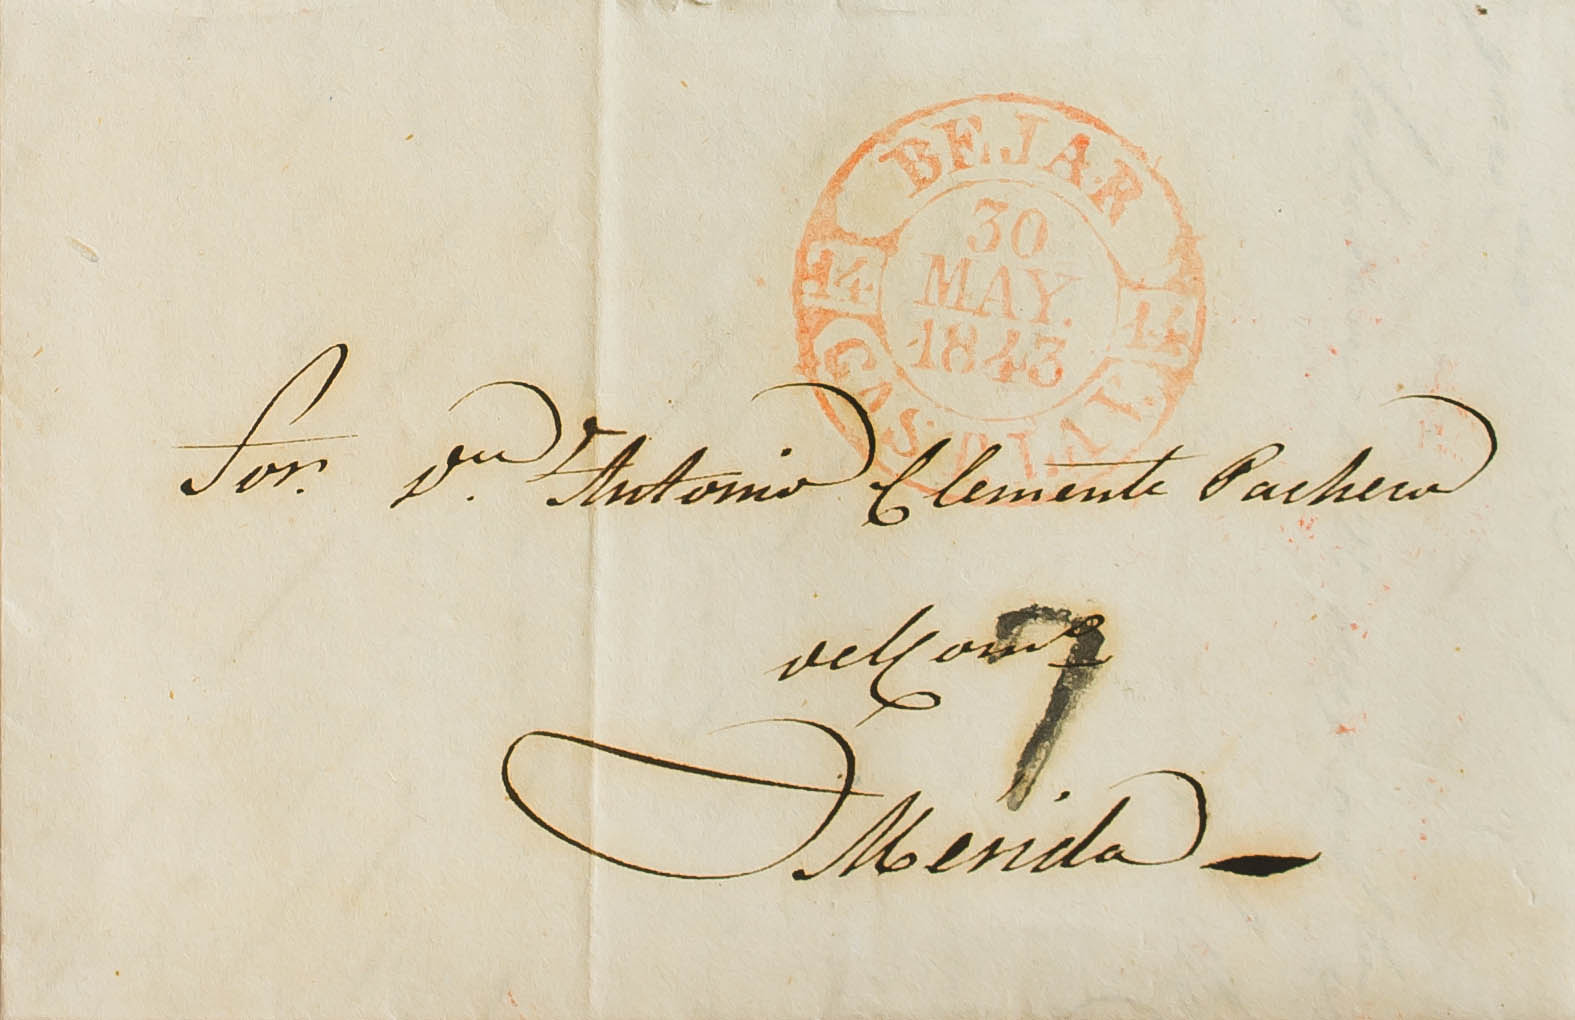 BEJAR
30
MAY.
1843
14
14
CAS. LA V.
Sor. Dn. Antonio Clemente Pacheco
del Come
7
Merida